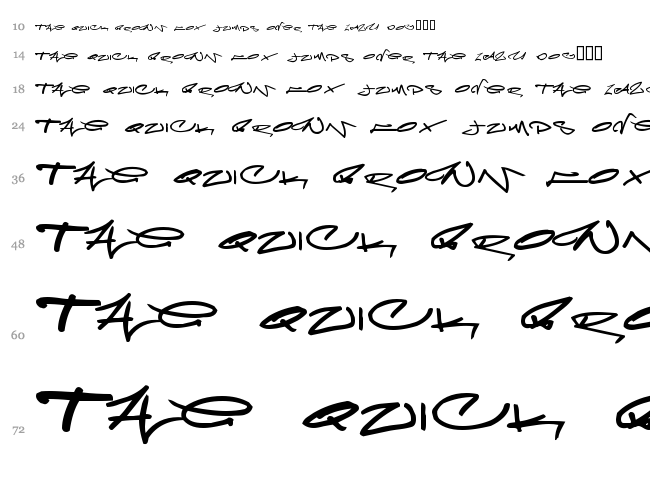 10 THE QUICK BROWN FOX JUMPS OVER THE LAZY DOG
14 THE QUICK BROWN FOX JUMPS OVER THE LAZY DOG
18 THE QUICK BROWN FOX JUMPS OVER THE LAZ
24 THE QUICK BROWN FOX JUMPS OVE
36 THE QUICK BROWN FOX
48 THE QUICK BROWN
60 THE QUICK BRO
72 THE QUICK